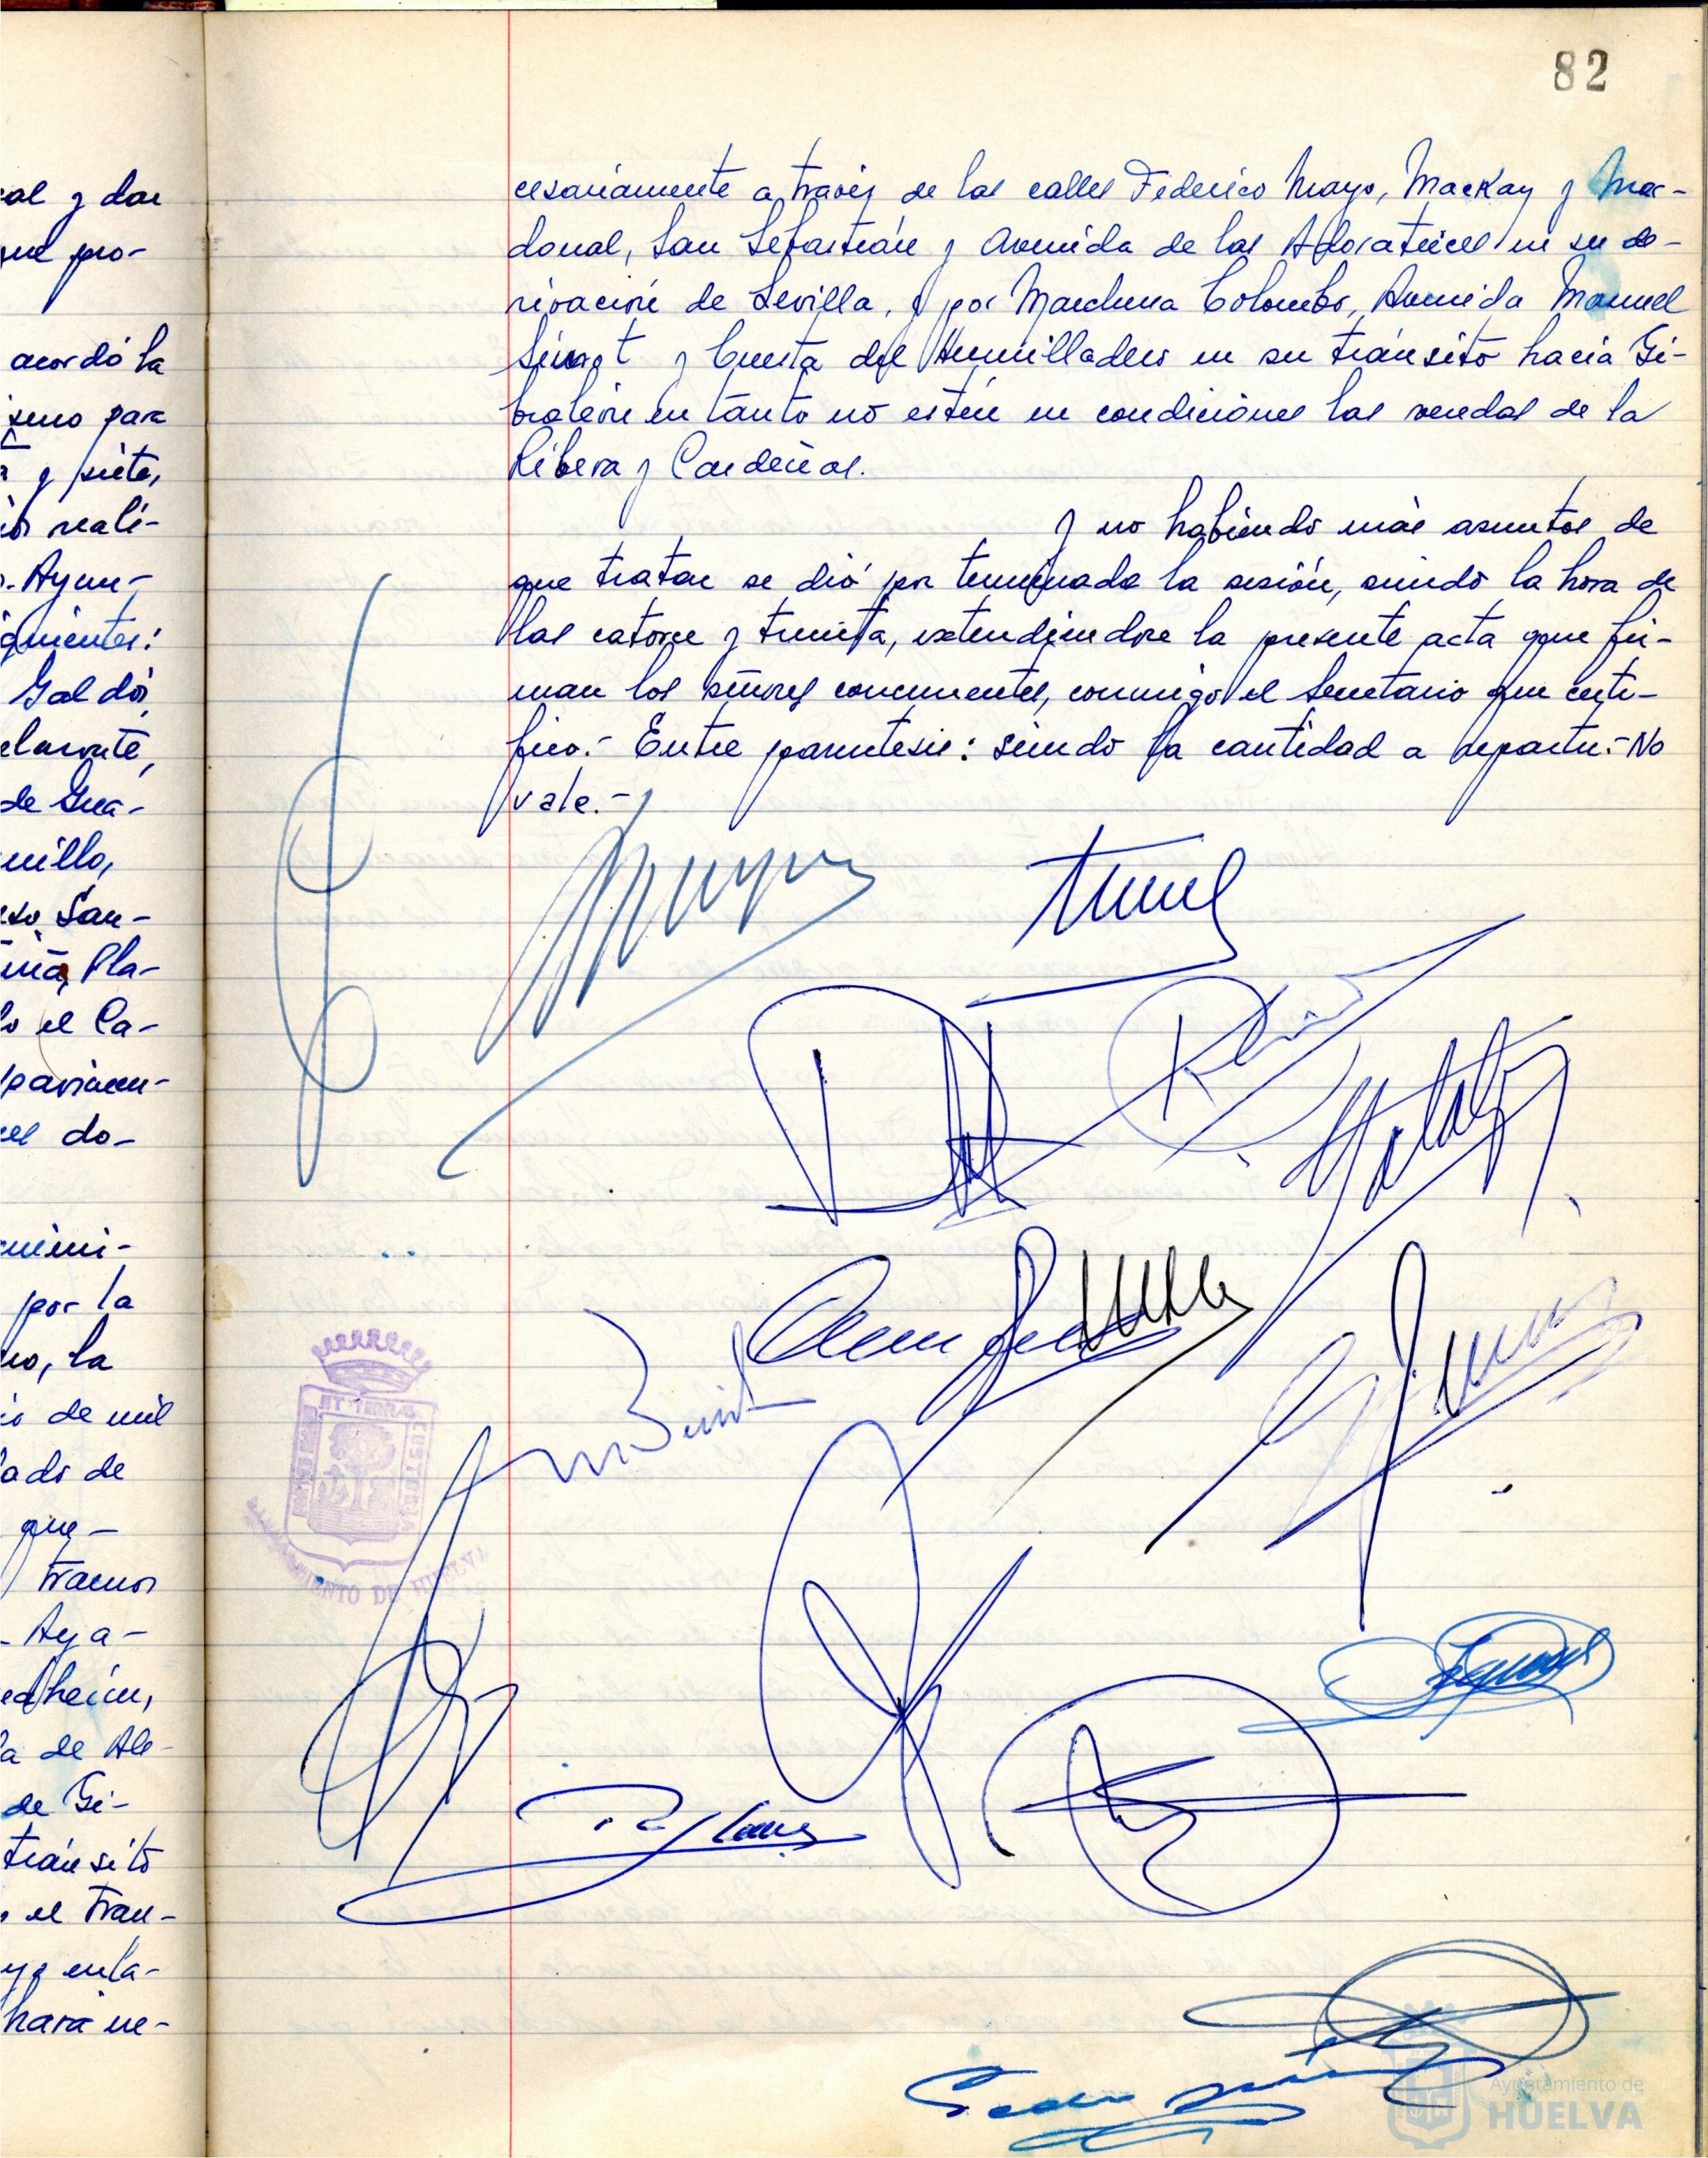 82
cesariamente a través de las calles Federico Mayo, MacKay y Mac-
donal, San Sebastián y Avenida de las Adoratrices en su de-
rivación de Sevilla, y por Marchena Colombo, Avenida Manuel
Siurot y Cuesta del Humilladero en su tránsito hacia Gi-
braleón en tanto no estén en condiciones las veredas de la
Ribera y Cardeñas.
y no habiendo más asuntos de
que tratar se dió por terminada la sesión, siendo la hora de
las catorce y treinta, extendiendose la presente acta que fir-
man los señores concurrentes, conmigo el Secretario que certi-
fico.- Entre parentesis: siendo la cantidad a repartir.- No
vale.-
al y dar
que pro-
acordó la
para
y siete,
reali-
Ayun-
siguientes:
Galdós,
de Gua-
San-
Pla-
el Ca-
pavimen-
do-
por la
la
de mil
de
que-
tramos
Aya-
de Gi-
tránsito
el tran-
enla-
hará ne-
ET TERRAE CUSTODIA
AYUNTAMIENTO DE HUELVA
Ayuntamiento de
HUELVA